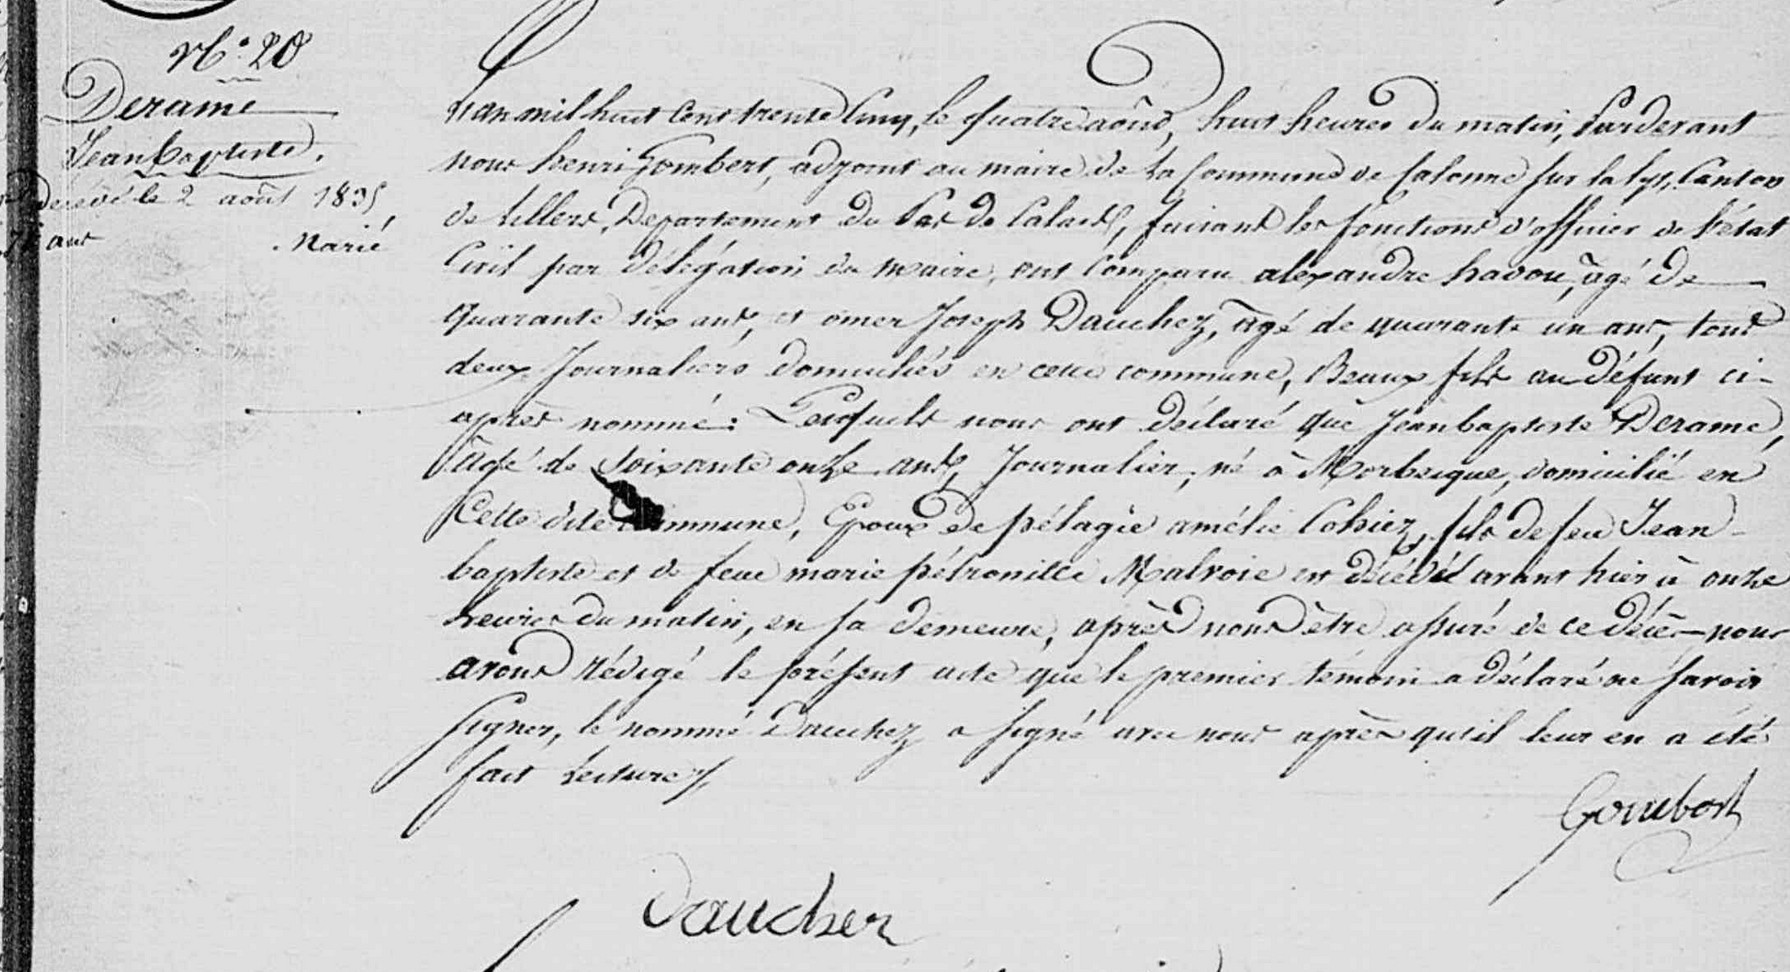 N.° 20
Derame
Jean baptiste.
décédé le 2 août 1835,
71 ans
Marié
L'an mil huit cent trente cinq, le quatre août, huit heures du matin, Pardevant
nous henri Gombert, adjoint au maire de la Commune de Calonne sur la lys, Canton
de lillers, Departement du Pas de Calais, faisant les fonctions d'officier de l'état
Civil par délégation du maire, ont comparu alexandre havou, âgé de
quarante six ans, et omer Joseph Dauchez, âgé de quarante un ans, tous
deux Journaliers domiciliés en cette commune, Beaux fils au défunt ci-
après nommé: Lesquels nous ont déclaré que Jean baptiste Derame,
âgé de soixante onze ans, Journalier, né à Morbecque, domicilié en
Cette dite Commune, Epoux de pélagie amélie Cohiez, fils de feu Jean-
baptiste et de feue marie pétronille Malvoie est décédé avant hier à onze
heures du matin, en sa demeure, après nous être assuré de ce décès nous
avons rédigé le présent acte que le premier témoin a déclaré ne savoir
signer, le nommé Dauchez a signé avec nous après qu'il leur en a été
fait lecture
Gombert
Dauchez